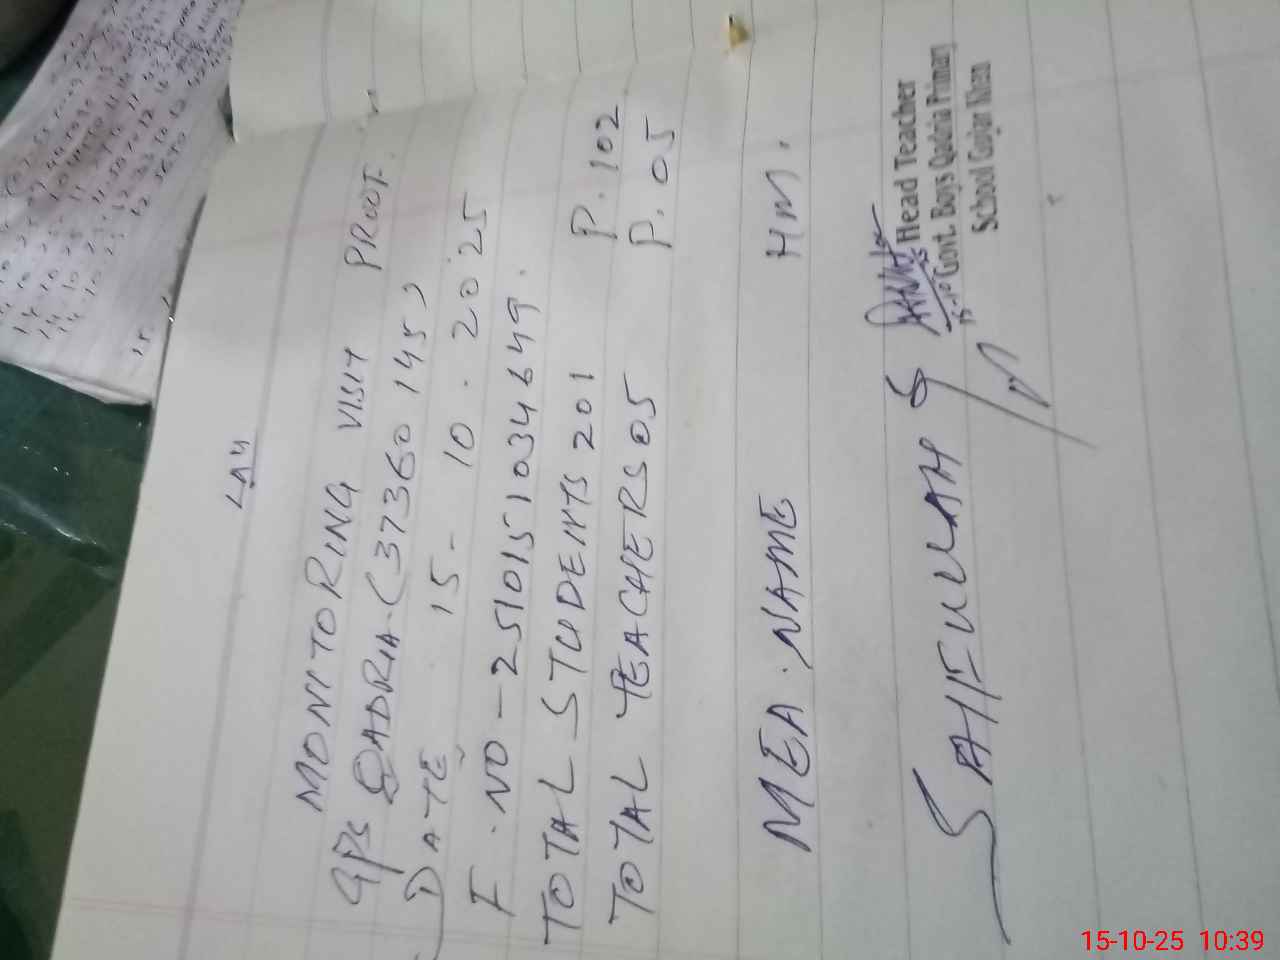 LAU
MONITORING VISIT PROOF.
GPS QADRIA (37360145)
DATE 15-10.2025
F.NO-2510151034649.
TOTAL STUDENTS 201 P.102
TOTAL TEACHERS 05 P.05
MEA.NAME HM.
SAIFULLAH
Head Teacher
Govt. Boys Qadria Primary
School Gujar Khan
15-10-25 10:39